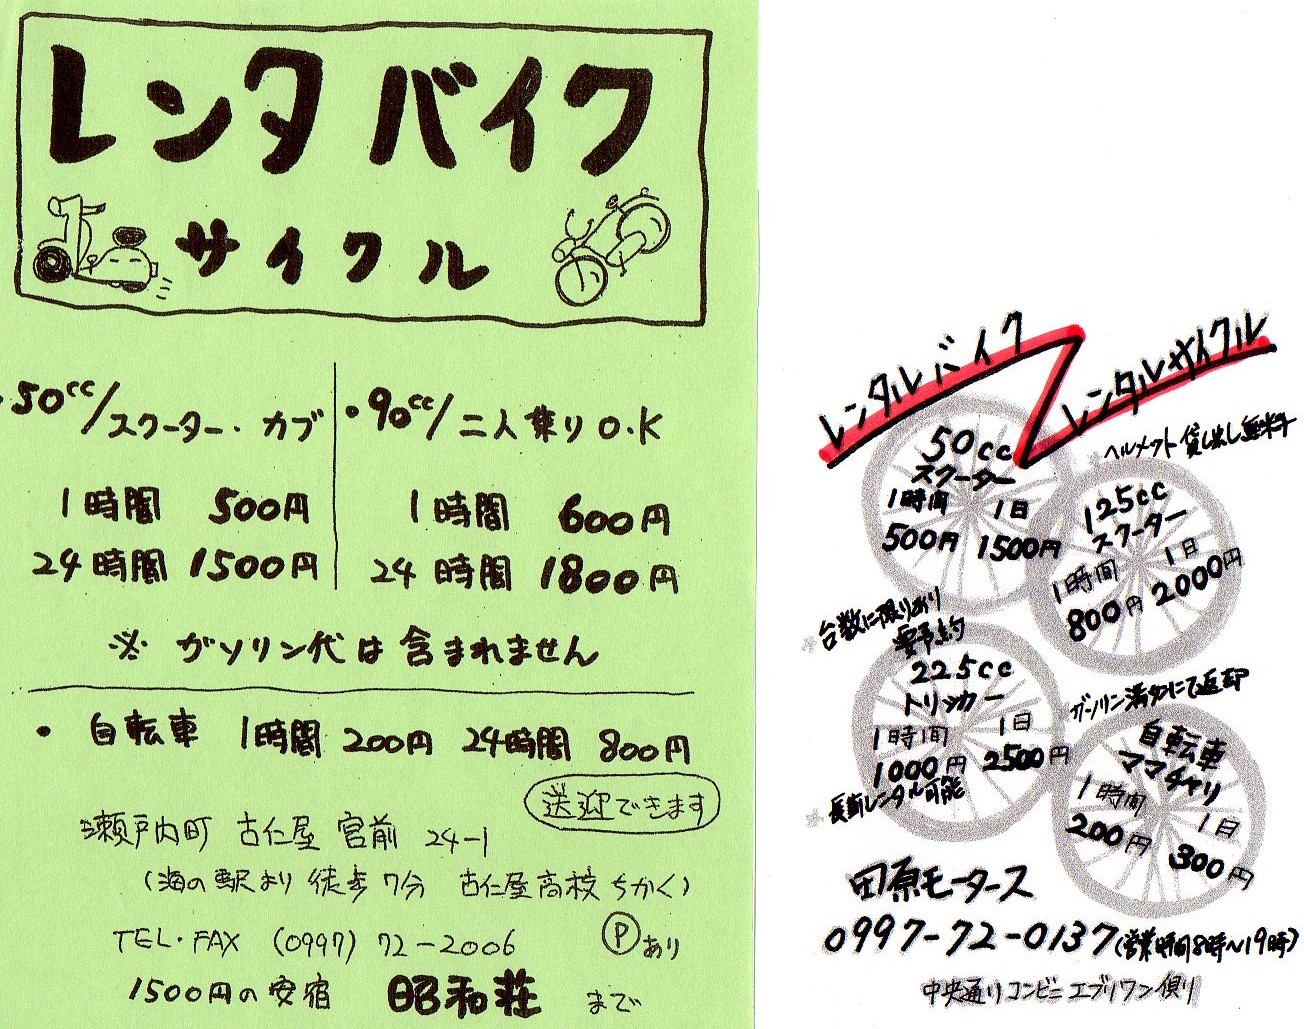 レンタバイク
サイクル
・50cc/スクーター・カブ
1時間 500円
24時間 1500円
・90cc/二人乗りO.K
1時間 600円
24時間 1800円
※ ガソリン代は含まれません
・自転車 1時間 200円 24時間 800円
送迎できます
瀬戸内町 古仁屋 宮前 24-1
(海の駅より 徒歩7分 古仁屋高校ちかく)
TEL・FAX (0997) 72-2006
Ⓟあり
1500円の安宿 昭和荘 まで
レンタルバイク
レンタルサイクル
※ヘルメット貸し出し無料
50cc
スクーター
1時間 1日
500円 1500円
125cc
スクーター
1時間 1日
800円 2000円
※台数に限りあり
要予約
225cc
トリッカー
1時間 1日
1000円 2500円
※長期レンタル可能
ガソリン満タンにて返却
自転車
ママチャリ
1時間 1日
200円 300円
田原モータース
0997-72-0137(営業時間8時～19時)
中央通りコンビニエブリワン側り